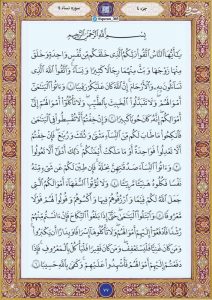 جزء ٤
سوره نساء ٤
بِسْمِ ٱللَّهِ ٱلرَّحْمَٰنِ ٱلرَّحِيمِ
يَٰٓأَيُّهَا ٱلنَّاسُ ٱتَّقُوا۟ رَبَّكُمُ ٱلَّذِى خَلَقَكُم مِّن نَّفْسٍ وَٰحِدَةٍ وَخَلَقَ
مِنْهَا زَوْجَهَا وَبَثَّ مِنْهُمَا رِجَالًا كَثِيرًا وَنِسَآءً ۚ وَٱتَّقُوا۟ ٱللَّهَ ٱلَّذِى
تَسَآءَلُونَ بِهِۦ وَٱلْأَرْحَامَ ۚ إِنَّ ٱللَّهَ كَانَ عَلَيْكُمْ رَقِيبًا ١ وَءَاتُوا۟ ٱلْيَتَٰمَىٰٓ
أَمْوَٰلَهُمْ ۖ وَلَا تَتَبَدَّلُوا۟ ٱلْخَبِيثَ بِٱلطَّيِّبِ ۖ وَلَا تَأْكُلُوٓا۟ أَمْوَٰلَهُمْ إِلَىٰٓ
أَمْوَٰلِكُمْ ۚ إِنَّهُۥ كَانَ حُوبًا كَبِيرًا ٢ وَإِنْ خِفْتُمْ أَلَّا تُقْسِطُوا۟ فِى ٱلْيَتَٰمَىٰ
فَٱنكِحُوا۟ مَا طَابَ لَكُم مِّنَ ٱلنِّسَآءِ مَثْنَىٰ وَثُلَٰثَ وَرُبَٰعَ ۖ فَإِنْ خِفْتُمْ
أَلَّا تَعْدِلُوا۟ فَوَٰحِدَةً أَوْ مَا مَلَكَتْ أَيْمَٰنُكُمْ ۚ ذَٰلِكَ أَدْنَىٰٓ أَلَّا تَعُولُوا۟
٣ وَءَاتُوا۟ ٱلنِّسَآءَ صَدُقَٰتِهِنَّ نِحْلَةً ۚ فَإِن طِبْنَ لَكُمْ عَن شَىْءٍ مِّنْهُ
نَفْسًا فَكُلُوهُ هَنِيٓـًٔا مَّرِيٓـًٔا ٤ وَلَا تُؤْتُوا۟ ٱلسُّفَهَآءَ أَمْوَٰلَكُمُ ٱلَّتِى
جَعَلَ ٱللَّهُ لَكُمْ قِيَٰمًا وَٱرْزُقُوهُمْ فِيهَا وَٱكْسُوهُمْ وَقُولُوا۟ لَهُمْ قَوْلًا
مَّعْرُوفًا ٥ وَٱبْتَلُوا۟ ٱلْيَتَٰمَىٰ حَتَّىٰٓ إِذَا بَلَغُوا۟ ٱلنِّكَاحَ فَإِنْ ءَانَسْتُم مِّنْهُمْ
رُشْدًا فَٱدْفَعُوٓا۟ إِلَيْهِمْ أَمْوَٰلَهُمْ ۖ وَلَا تَأْكُلُوهَآ إِسْرَافًا وَبِدَارًا أَن يَكْبَرُوا۟ ۚ
وَمَن كَانَ غَنِيًّا فَلْيَسْتَعْفِفْ ۖ وَمَن كَانَ فَقِيرًا فَلْيَأْكُلْ بِٱلْمَعْرُوفِ ۚ فَإِذَا
دَفَعْتُمْ إِلَيْهِمْ أَمْوَٰلَهُمْ فَأَشْهِدُوا۟ عَلَيْهِمْ ۚ وَكَفَىٰ بِٱللَّهِ حَسِيبًا ٦
٧٧